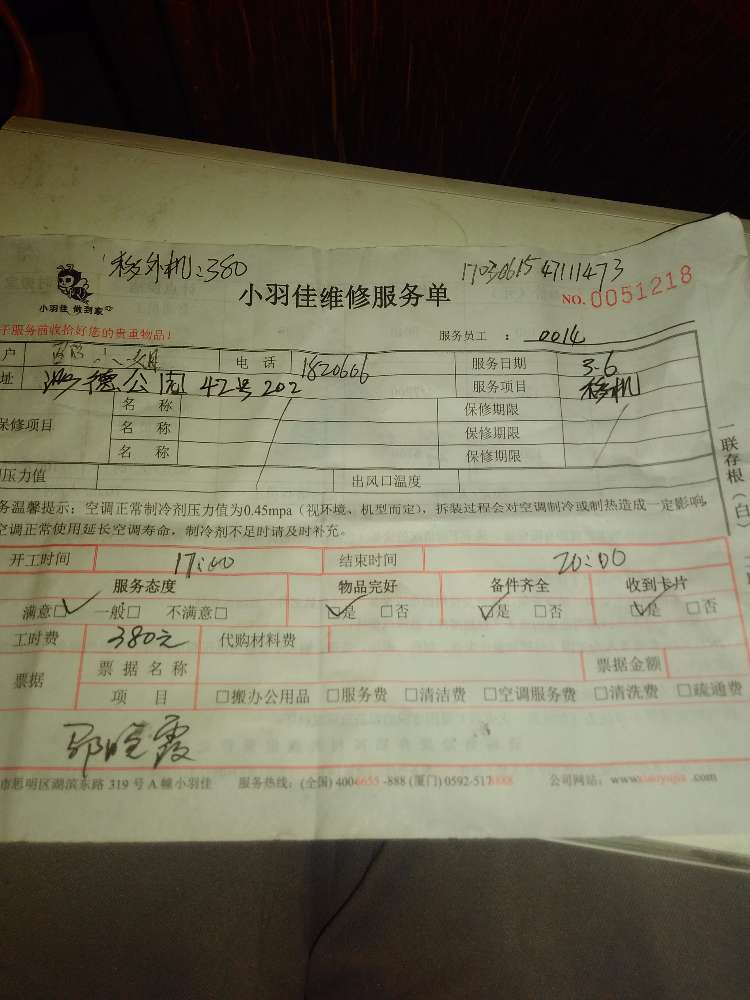 移外机:380
1703061547111473
小羽佳 做到家
小羽佳维修服务单
NO.0051218
于服务前收拾好您的贵重物品!
服务员工 : 0014
户 小姐 电话 1820606 服务日期 3.6
址 德公园 42号202 服务项目 移机
保修项目 名称 保修期限
名称 保修期限
名称 保修期限
压力值 出风口温度
务温馨提示:空调正常制冷剂压力值为0.45mpa(视环境、机型而定),拆装过程会对空调制冷或制热造成一定影响,
空调正常使用延长空调寿命,制冷剂不足时请及时补充。
一联存根(白)
开工时间 17:00 结束时间 20:00
服务态度 物品完好 备件齐全 收到卡片
满意☑ 一般□ 不满意□ ☑是 □否 ☑是 □否 ☑是 □否
工时费 380元 代购材料费
票据 票据名称 票据金额
项目 □搬办公用品 □服务费 □清洁费 □空调服务费 □清洗费 □疏通费
晓霞
市思明区湖滨东路 319 号 A 幢小羽佳 服务热线:(全国) 400-6655-888 (厦门) 0592-5178888 公司网站:www.xiaoyujia.com